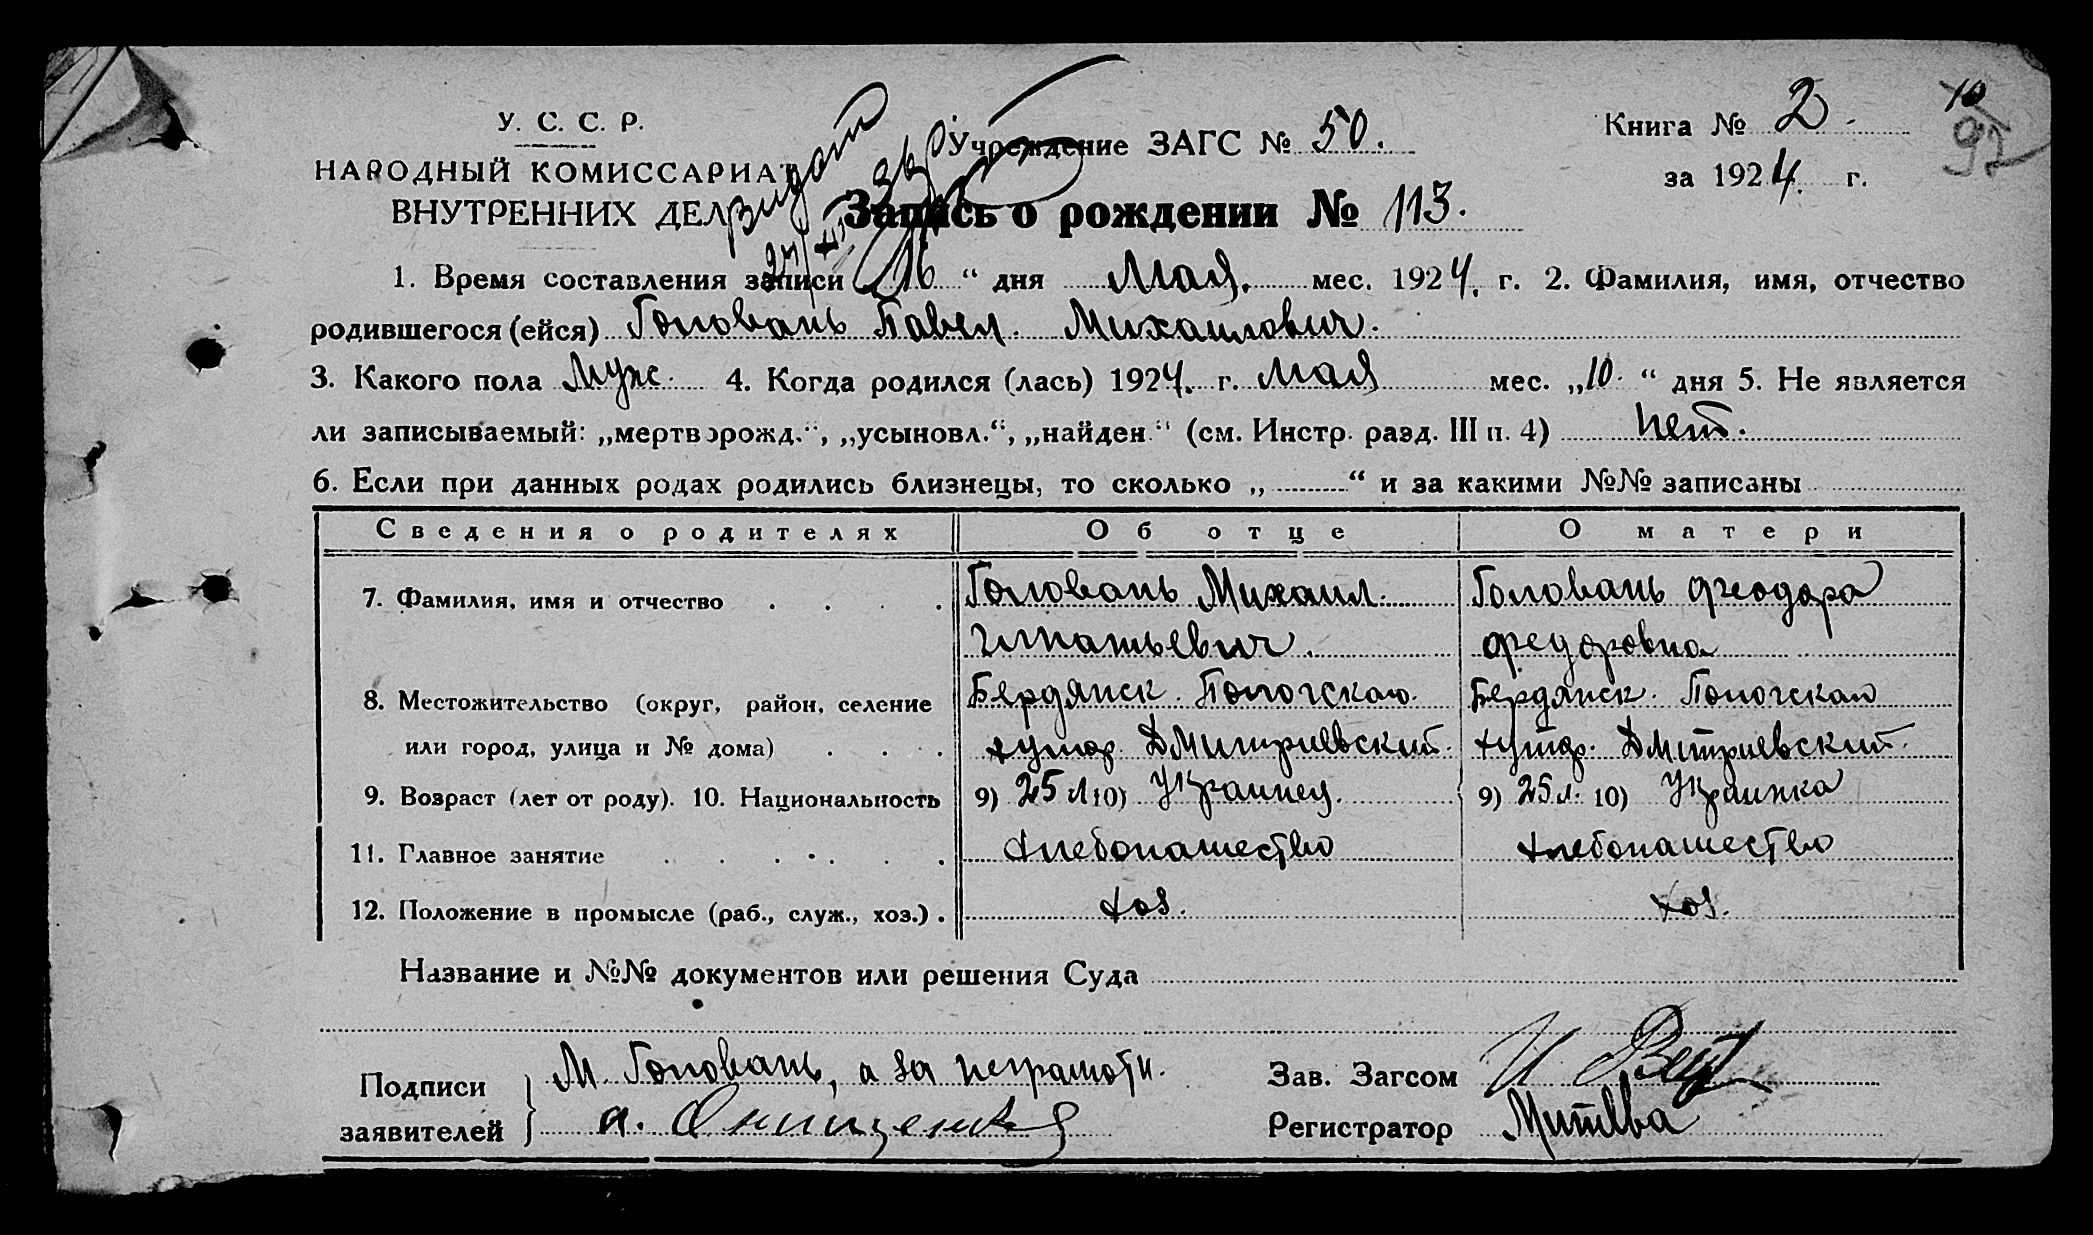 У. С. С. Р.
НАРОДНЫЙ КОМИССАРИАТ
ВНУТРЕННИХ ДЕЛ
Учреждение ЗАГС № 50.
Книга № 2.
за 1924. г.
10
92
Запись о рождении № 113.
1. Время составления записи „16“ дня Мая. мес. 1924. г. 2. Фамилия, имя, отчество
родившегося (ейся) Головань Павел. Михаилович.
3. Какого пола Муж. 4. Когда родился (лась) 1924. г. мая мес. „10.“ дня 5. Не является
ли записываемый: „мертворожд.“, „усыновл.“, „найден.“ (см. Инстр. разд. III п. 4) Нет.
6. Если при данных родах родились близнецы, то сколько „ “ и за какими №№ записаны
Сведения о родителях Об отце О матери
7. Фамилия, имя и отчество Головань Михаил. Головань Феодора
Игнатьевич. Федоровна
8. Местожительство (округ, район, селение Бердянск. Пологскаго. Бердянск. Пологскаго
или город, улица и № дома) хутор. Дмитриевский. хутор. Дмитриевский.
9. Возраст (лет от роду). 10. Национальность 9) 25 л 10) Украинец. 9) 25 л. 10) Украинка
11. Главное занятие Хлебопашество Хлебопашество
12. Положение в промысле (раб., служ., хоз.). хоз. хоз.
Название и №№ документов или решения Суда
Подписи заявителей М. Головань, а за неграмотн.
Зав. Загсом И
Регистратор